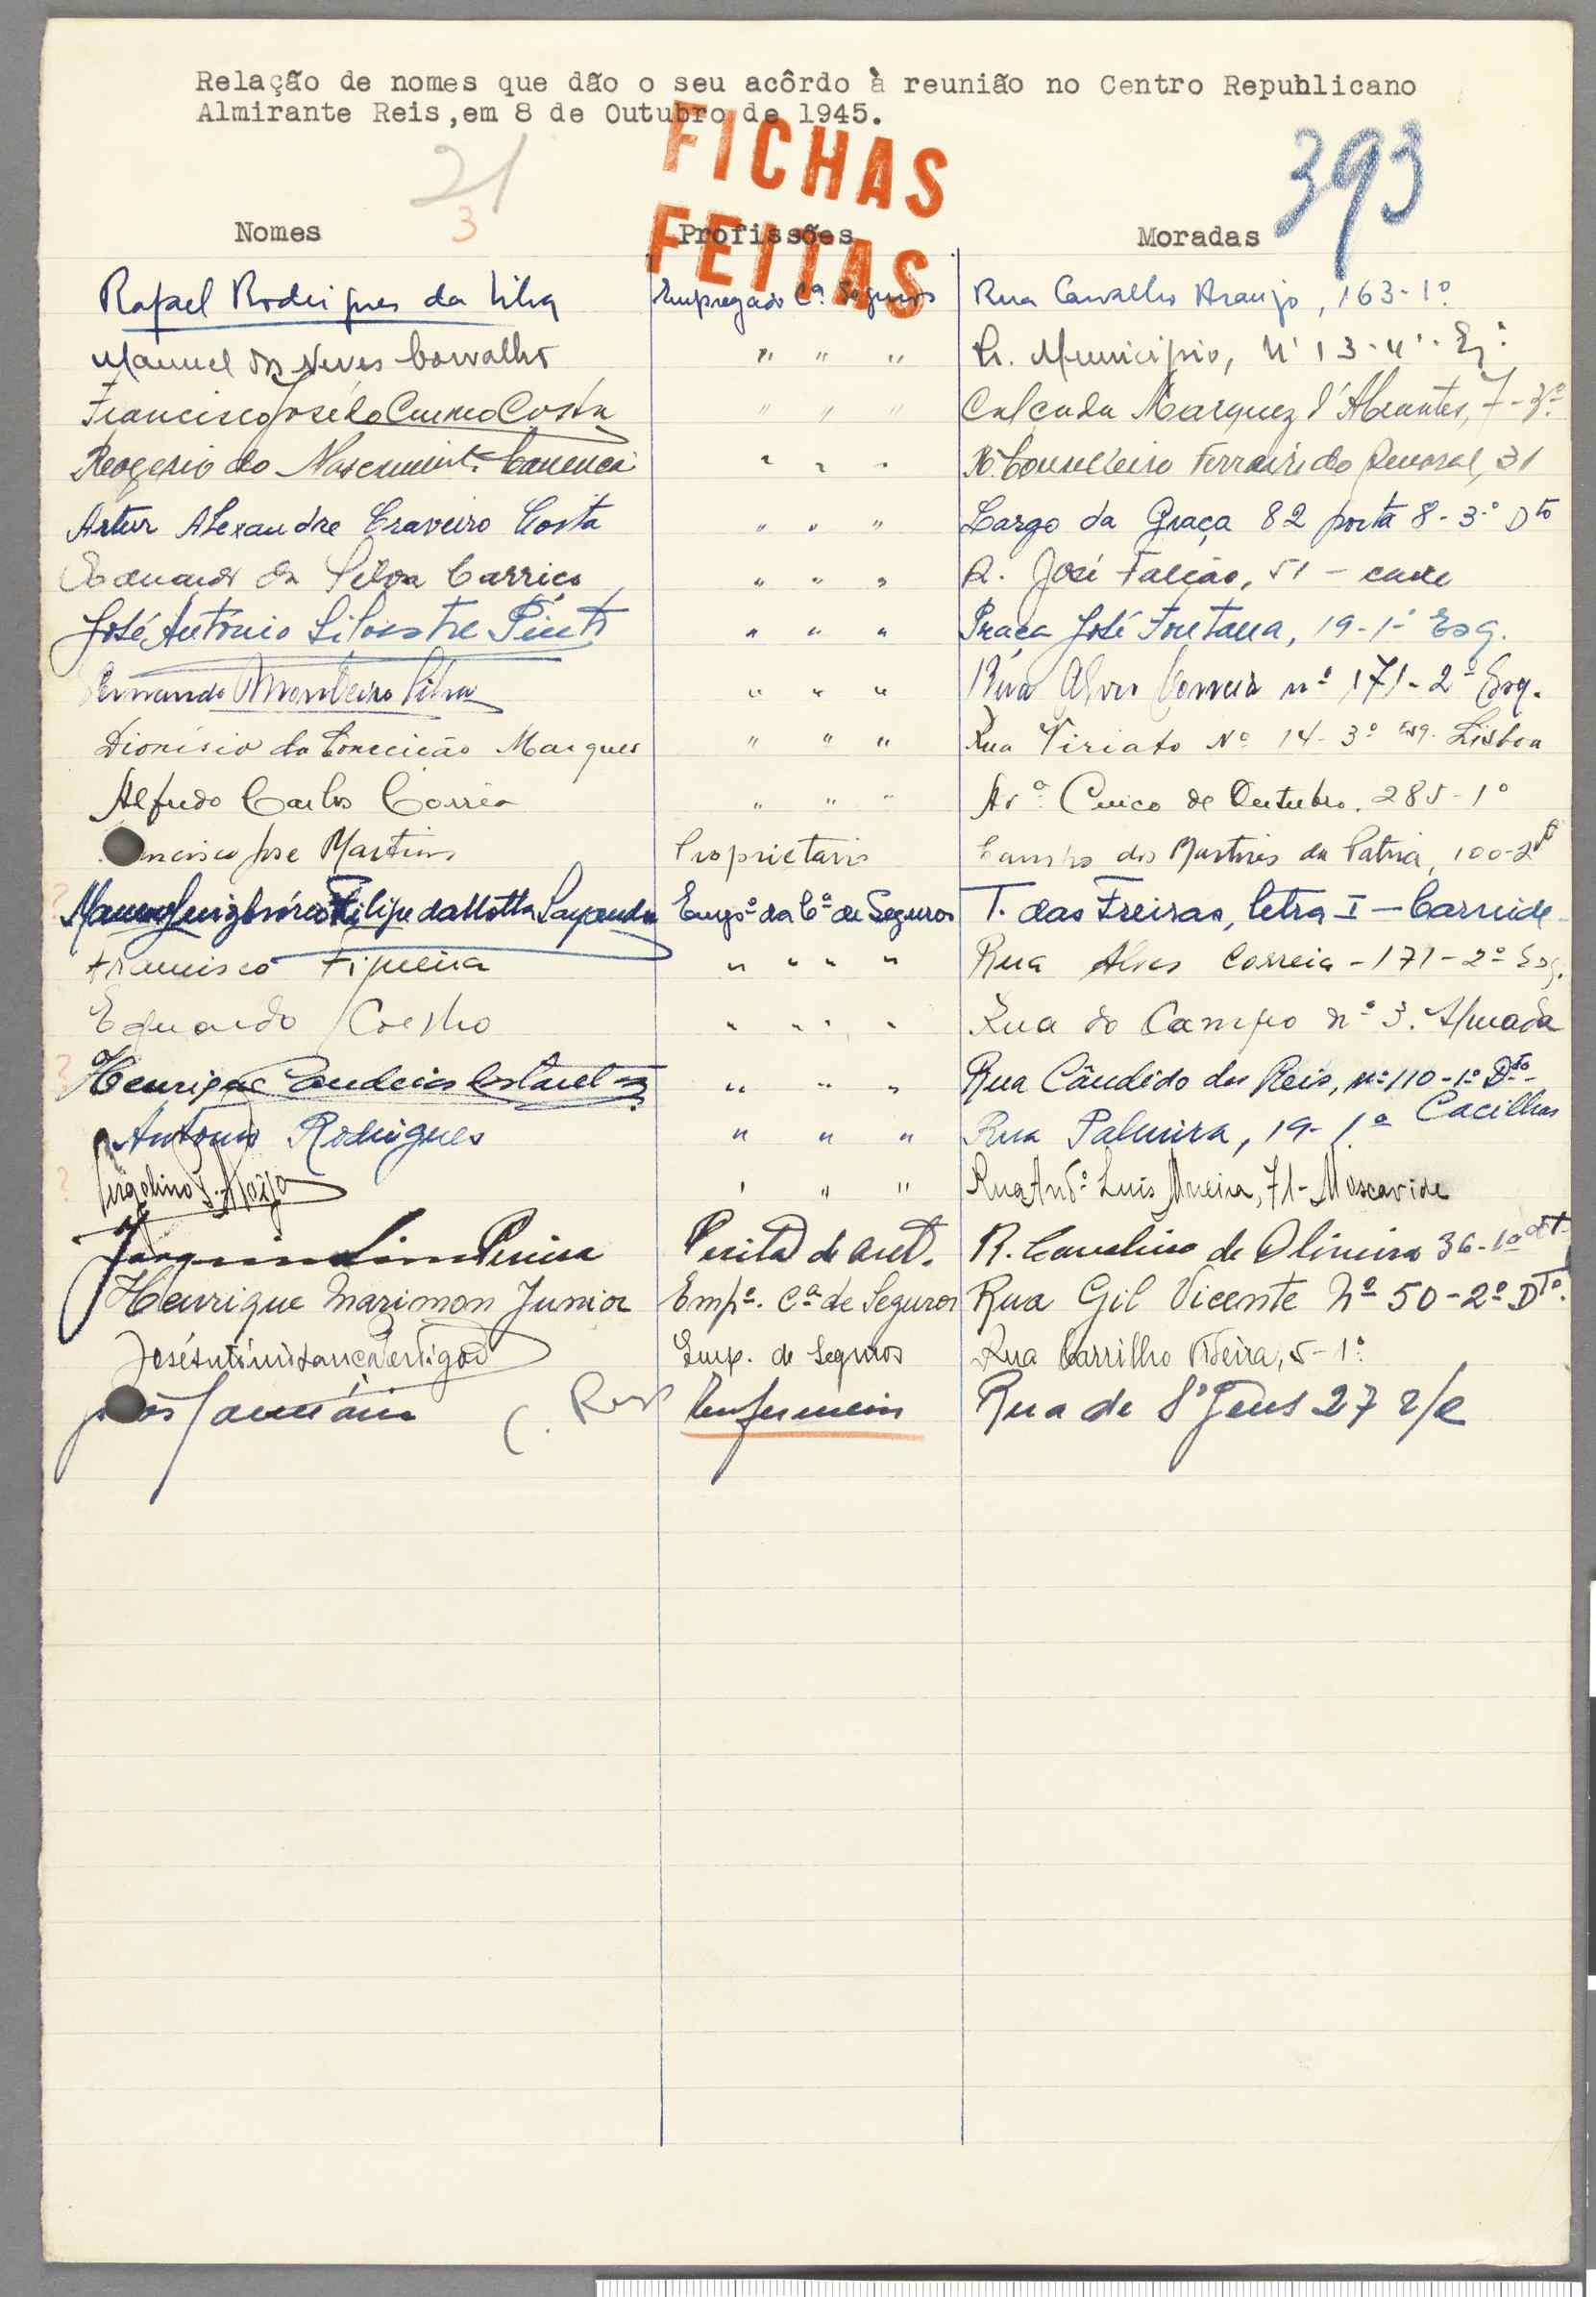 Relação de nomes que dão o seu acôrdo à reunião no Centro Republicano
Almirante Reis,em 8 de Outubro de 1945.
21
3
FICHAS
FEITAS
393
Nomes Profissões Moradas
Rafael Rodrigues da Silva Empregado Cª. Seguros Rua Carvalho Araujo, 163-1º
Manuel das Neves Carvalho " " " L. Municipio, Nº 13-4º-Eº
Francisco José do Carmo Costa " " " Calçada Marquez d'Abrantes, 7-3º
Rogerio do Nascimento " " " R. Conselheiro Ferreira do Amaral, 31
Artur Alexandre Craveiro Costa " " " Largo da Graça 82 porta 8-3º Dto
Eduardo da Silva Carriço " " " R. José Falcão, 51-cave
José António Silvestre Pinto " " " Praça José Fontana, 19-1º Esq.
Fernando Monteiro Silva " " " Rua Alves Correia nº 171-2º Esq.
Dionísio da Conceição Marques " " " Rua Viriato Nº 14-3º Esq. Lisboa
Alfredo Carlos Corrêa " " " Avª Cinco de Outubro. 285-1º
ncisco José Martins Proprietario Campo dos Martires da Patria, 100-2º
Filipe da Motta Empº da Cª de Seguros T. das Freiras, letra I - Carnide
Francisco Figueira " " " " Rua Alves Correia-171-2º Esq.
Eduardo Coelho " " " " Rua do Campo nº 3. Almada
? Henrique " " " Rua Cândido dos Reis, nº 110-1º Dto-
Cacilhas
Antonio Rodrigues " " " Rua Palmira, 19-1º
? Virgolino " " " Rua Antº Luis Moreira, 71-Moscavide
Joaquim Lima Pereira Perito de R. Cavaleiro de Oliveira 36-1º dt.
Henrique Marimon Junior Empº. Cª de Seguros Rua Gil Vicente Nº 50-2º Dto.
José António Emp. de Seguros Rua Carrilho Videira, 5-1º
Enfermeiro Rua de Sº Gens 27 r/c